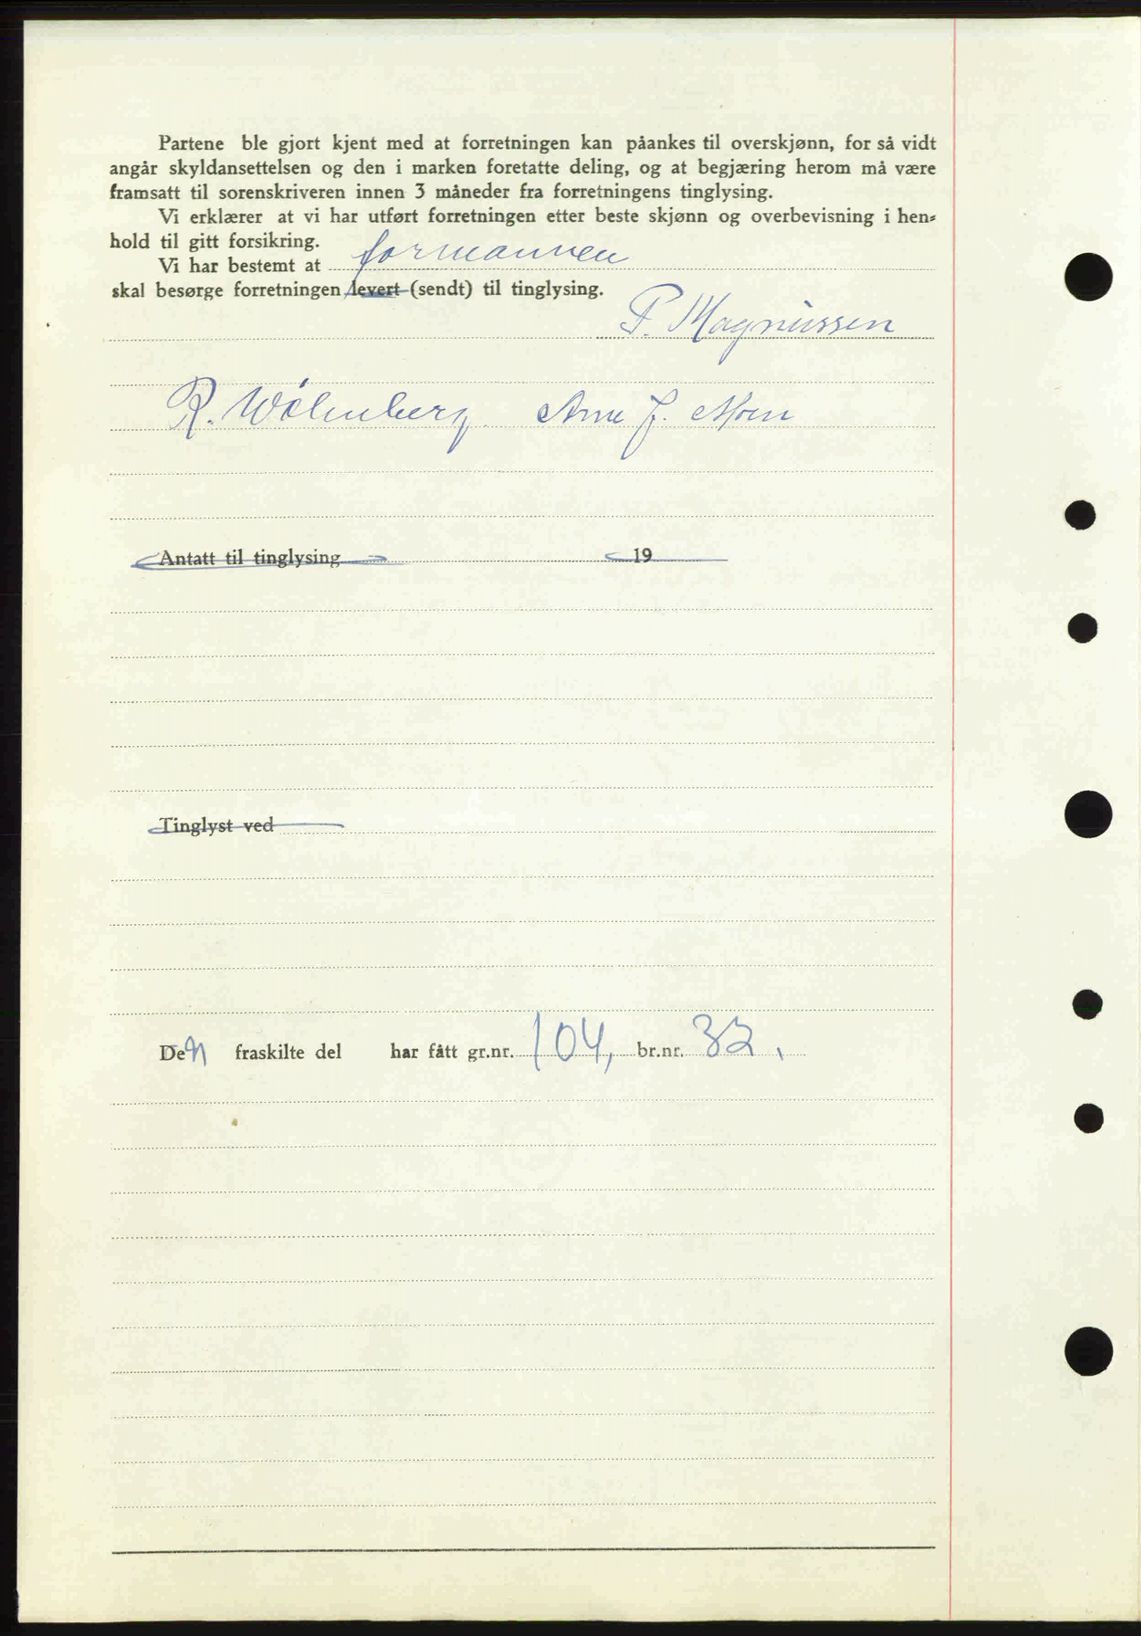 Partene ble gjort kjent med at forretningen kan påankes til overskjønn, for så vidt
angår skyldansettelsen og den i marken foretatte deling, og at begjæring herom må være
framsatt til sorenskriveren innen 3 måneder fra forretningens tinglysing.
Vi erklærer at vi har utført forretningen etter beste skjønn og overbevisning i hen-
hold til gitt forsikring.
Vi har bestemt at formannen
skal besørge forretningen levert (sendt) til tinglysing.
P. Magnussen
R. Wålenberg Arne J. Moen
Antatt til tinglysing 19
Tinglyst ved
Den fraskilte del har fått gr.nr. 104, br.nr. 32.